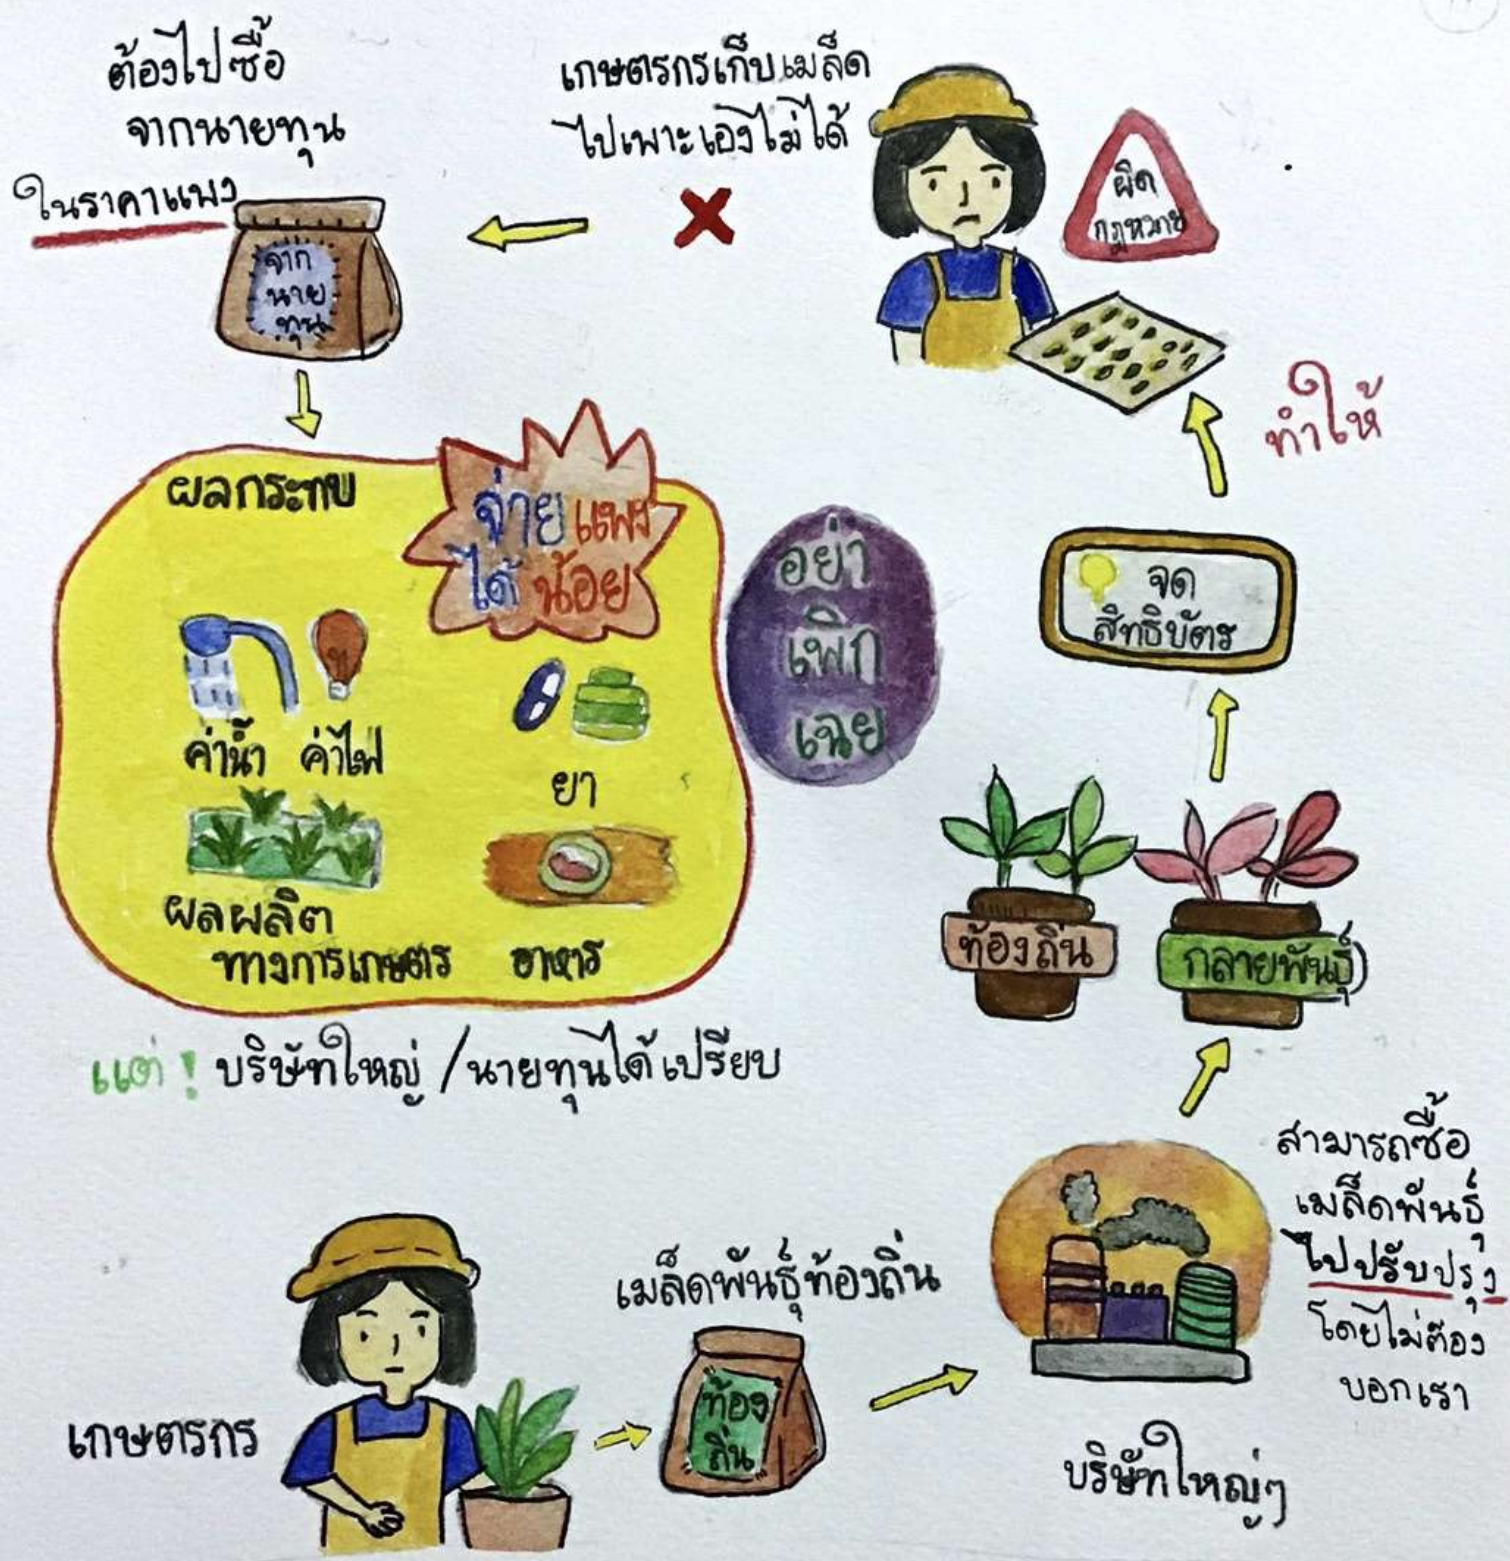 ต้องไปซื้อ
จากนายทุน
ในราคาแพง
จาก
นาย
ทุน
เกษตรกรเก็บเมล็ด
ไปเพาะเองไม่ได้
ผิด
กฎหมาย
ทำให้
ผลกระทบ
จ่ายแพง
ได้น้อย
อย่า
เพิก
เฉย
จด
สิทธิบัตร
ค่าน้ำ ค่าไฟ
ยา
ผลผลิต
ทางการเกษตร
อาหาร
ท้องถิ่น
กลายพันธุ์
แต่! บริษัทใหญ่/นายทุนได้เปรียบ
สามารถซื้อ
เมล็ดพันธุ์
ไปปรับปรุง
โดยไม่ต้อง
บอกเรา
เมล็ดพันธุ์ท้องถิ่น
ท้อง
ถิ่น
เกษตรกร
บริษัทใหญ่ๆ